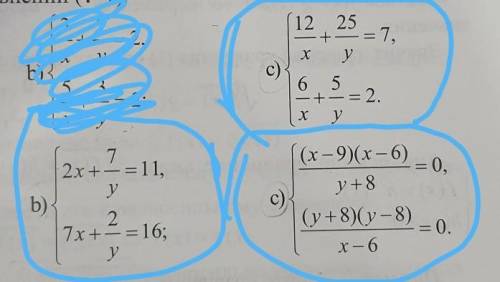 c) { 12/x + 25/y = 7,
6/x + 5/y = 2.
b) { 2x + 7/y = 11,
7x + 2/y = 16;
c) { (x – 9)(x – 6)/(y + 8) = 0,
(y + 8)(y – 8)/(x – 6) = 0.